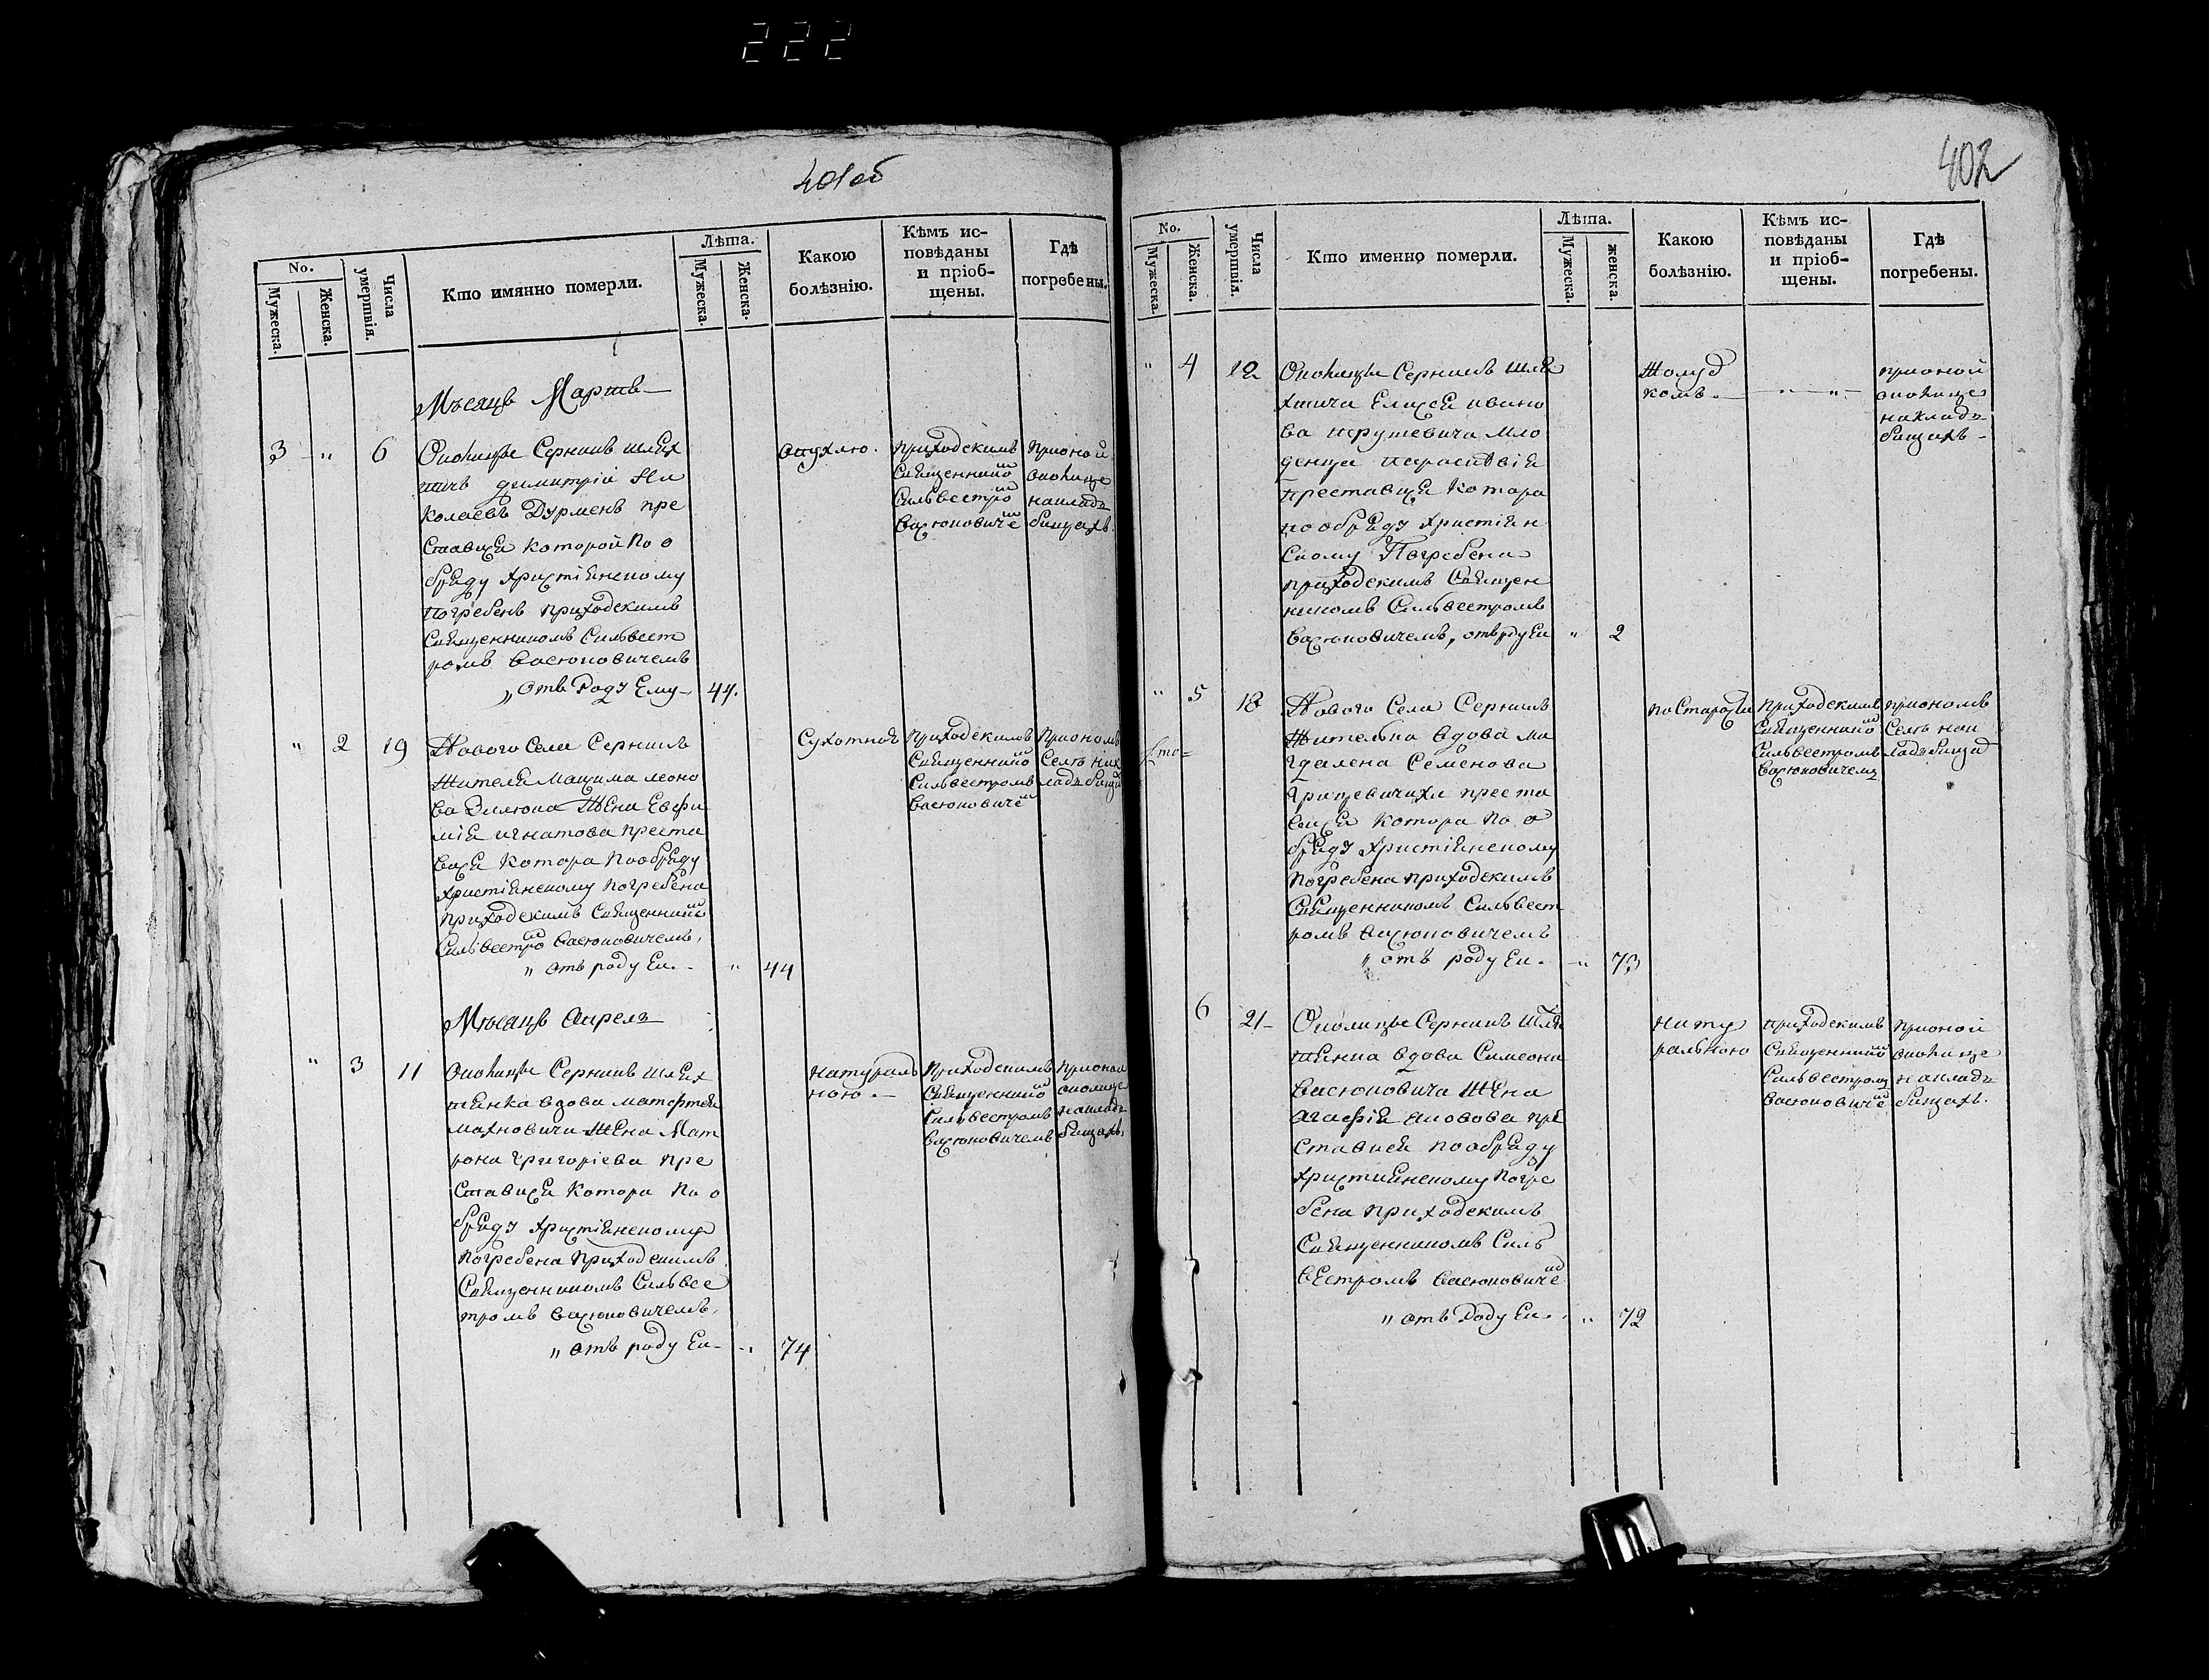 222
401 об
No.
Мужеска.
Женска.
Числа умертвія.
Кто имянно померли.
Лѣта.
Мужеска.
Женска.
Какою
болѣзнію.
Кѣмъ ис-
повѣданы
и пріоб-
щены.
Гдѣ
погребены.
Мѣсяцъ Мартъ
3 " 6
Околицы Серникъ шлях
тичъ Димитрій Ни
колаевъ Дурменъ пре
ставися которой по о
бряду христіянскому
погребенъ приходскимъ
священникомъ Сильвест
ромъ Васюковичемъ
" отъ роду ему 44.
опухлю.
приходскимъ
священнико
Сильвестро
Васюковиче
при оной
околице
на клад
бищахъ.
" 2 19
Нового Села Серникъ
жителя Мацима Леоно
ва жена Евфи
мія Игнатова преста
вися котора по обряду
христіянскому погребена
приходскимъ священникѡ
Сильвестро Васюковичемъ,
" отъ роду Еи " 44
Сухотноѣ
приходскимъ
священнико
Сильвестромъ
Васюковиче
при ономъ
Селѣ на к
ладбищѣ
Мѣсяцъ Апрель
" 3 11
Околицы Серникъ шлях
тянка вдова Матфея
Махновича жена Мат
рона Григоріева пре
ставися котора по о
бряду христіянскому
погребена приходскимъ
священникомъ Сильвес
тромъ Васюковичемъ
" отъ роду Еи " 74
натураль
ною.
приходскимъ
священнико
Сильвестромъ
Васюковичемъ
при оной
околице
на клад
бищахъ
402
No.
Мужеска.
Женска.
Числа умертвія.
Кто именно померли.
Лѣта.
Мужеска.
женска.
Какою
болѣзнію.
Кѣмъ ис-
повѣданы
и пріоб-
щены.
Гдѣ
погребены.
" 4 12
Околицы Серникъ шля
хтича Елисея Ивано
ва Перушевича мло
денца Параскѣвія
преставися котора
по обряду христіян
скому погребена
приходскимъ священ
никомъ Сильвестромъ
Васюковичемъ, отъ роду Еи " 2
Жолуд
комъ.
" "
при оной
околице
на клад
бищахъ
" 5 18
Нового Села Серникъ
жителька вдова Ма
гдалена Семенова
Грицевичиха преста
вися котора по о
бряду христіянскому
погребена приходскимъ
священникомъ Сильвест
ромъ Васюковичемъ
" отъ роду Еи " 73
по старости
приходскимъ
священнико
Сильвестромъ
Васюковичемъ
при ономъ
Селѣ на к
ладбищѣ
6 21
Околицы Серникъ шлях
тянка вдова Симеона
Васюковича жена
Агафія пре
ставися по обряду
християнскому погре
бена приходскимъ
священникомъ Силь
вестромъ Васюковиче
" отъ роду Еи " 72
нату
рального
приходскимъ
священнико
Сильвестромъ
Васюковиче
при оной
околице
на клад
бищахъ.